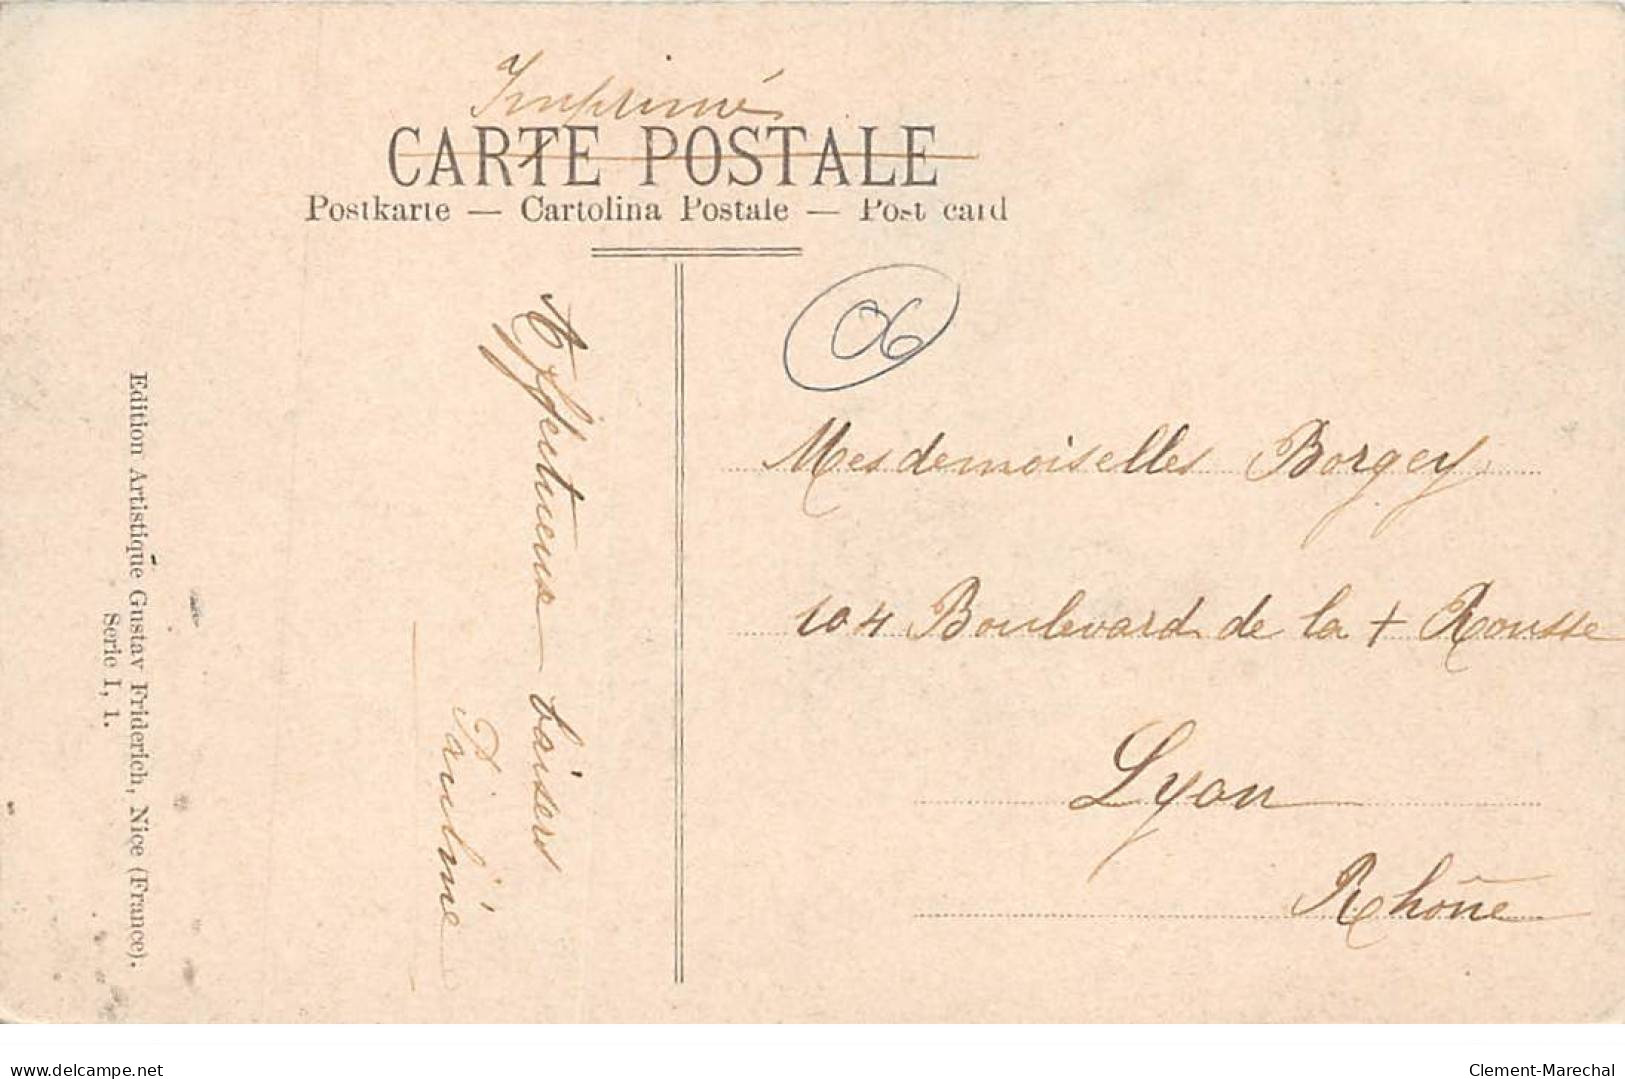 Imprimé
CARTE POSTALE
Postkarte — Cartolina Postale — Post card
06
Affectueux baisers
Pauline
Mesdemoiselles Borgey
104 Boulevard de la + Rousse
Lyon
Rhône
Edition Artistique Gustav Friderich, Nice (France).
Serie I, 1.
www.delcampe.net
Clement-Marechal